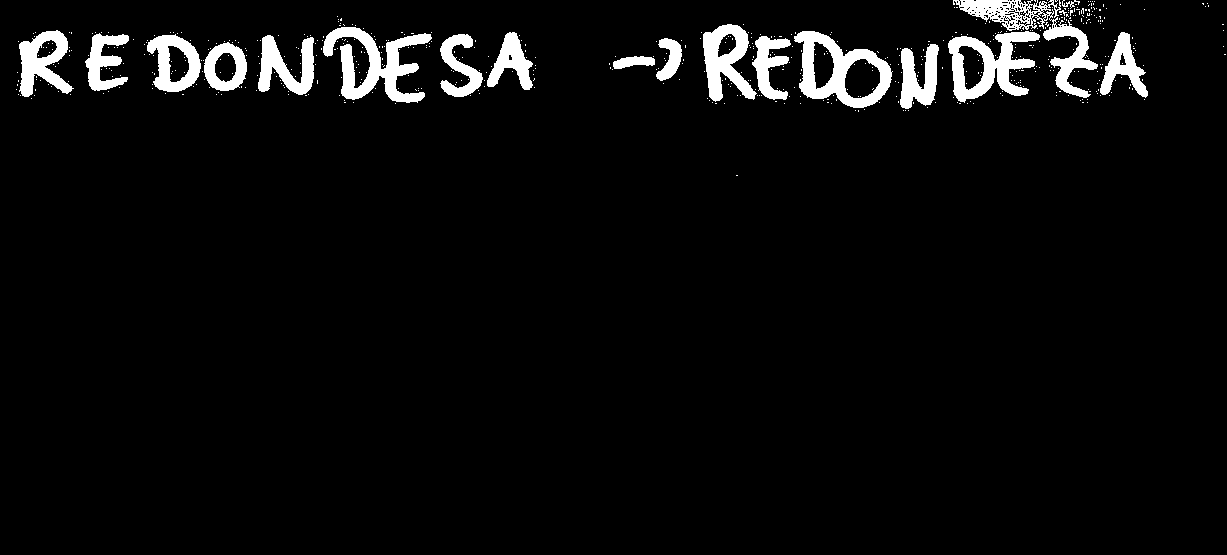 REDONDESA → REDONDEZA